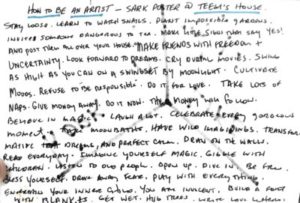 HOW TO BE AN ARTIST - SARK POSTER @ TEEM'S HOUSE
STAY LOOSE. LEARN TO WATCH SNAILS. PLANT IMPOSSIBLE GARDENS.
INVITE SOMEONE DANGEROUS TO TEA. MAKE LITTLE SIGNS THAT SAY YES!
AND POST THEM ALL OVER YOUR HOUSE. MAKE FRIENDS WITH FREEDOM +
UNCERTAINTY. LOOK FORWARD TO DREAMS. CRY DURING MOVIES. SWING
AS HIGH AS YOU CAN ON A SWINGSET BY MOONLIGHT. CULTIVATE
MOODS. REFUSE TO BE RESPONSIBLE. DO IT FOR LOVE. TAKE LOTS OF
NAPS. GIVE MONEY AWAY. DO IT NOW. THE MONEY WILL FOLLOW.
BELIEVE IN MAGIC. LAUGH A LOT. CELEBRATE EVERY GORGEOUS
MOMENT. TAKE MOONBATHS. HAVE WILD IMAGININGS, TRANSFOR
MATIVE DREAMS, AND PERFECT CALM. DRAW ON THE WALLS.
READ EVERYDAY. IMAGINE YOURSELF MAGIC. GIGGLE WITH
CHILDREN. LISTEN TO OLD PEOPLE. OPEN UP. DIVE IN. BE FREE.
BLESS YOURSELF. DRIVE AWAY FEAR. PLAY WITH EVERYTHING.
ENTERTAIN YOUR INNER CHILD. YOU ARE INNOCENT. BUILD A FORT
WITH BLANKETS. GET WET. HUG TREES. WRITE LOVE LETTERS.